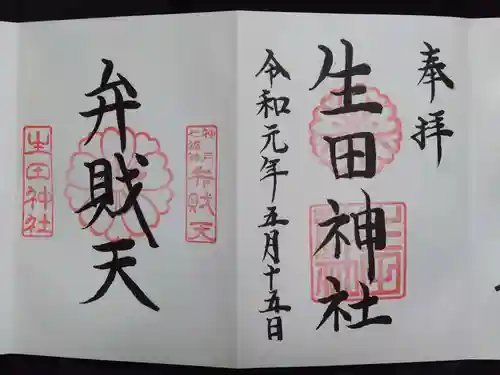 奉拝
生田神社
令和元年五月十五日
神戸七福神
弁財天
弁財天
生田神社